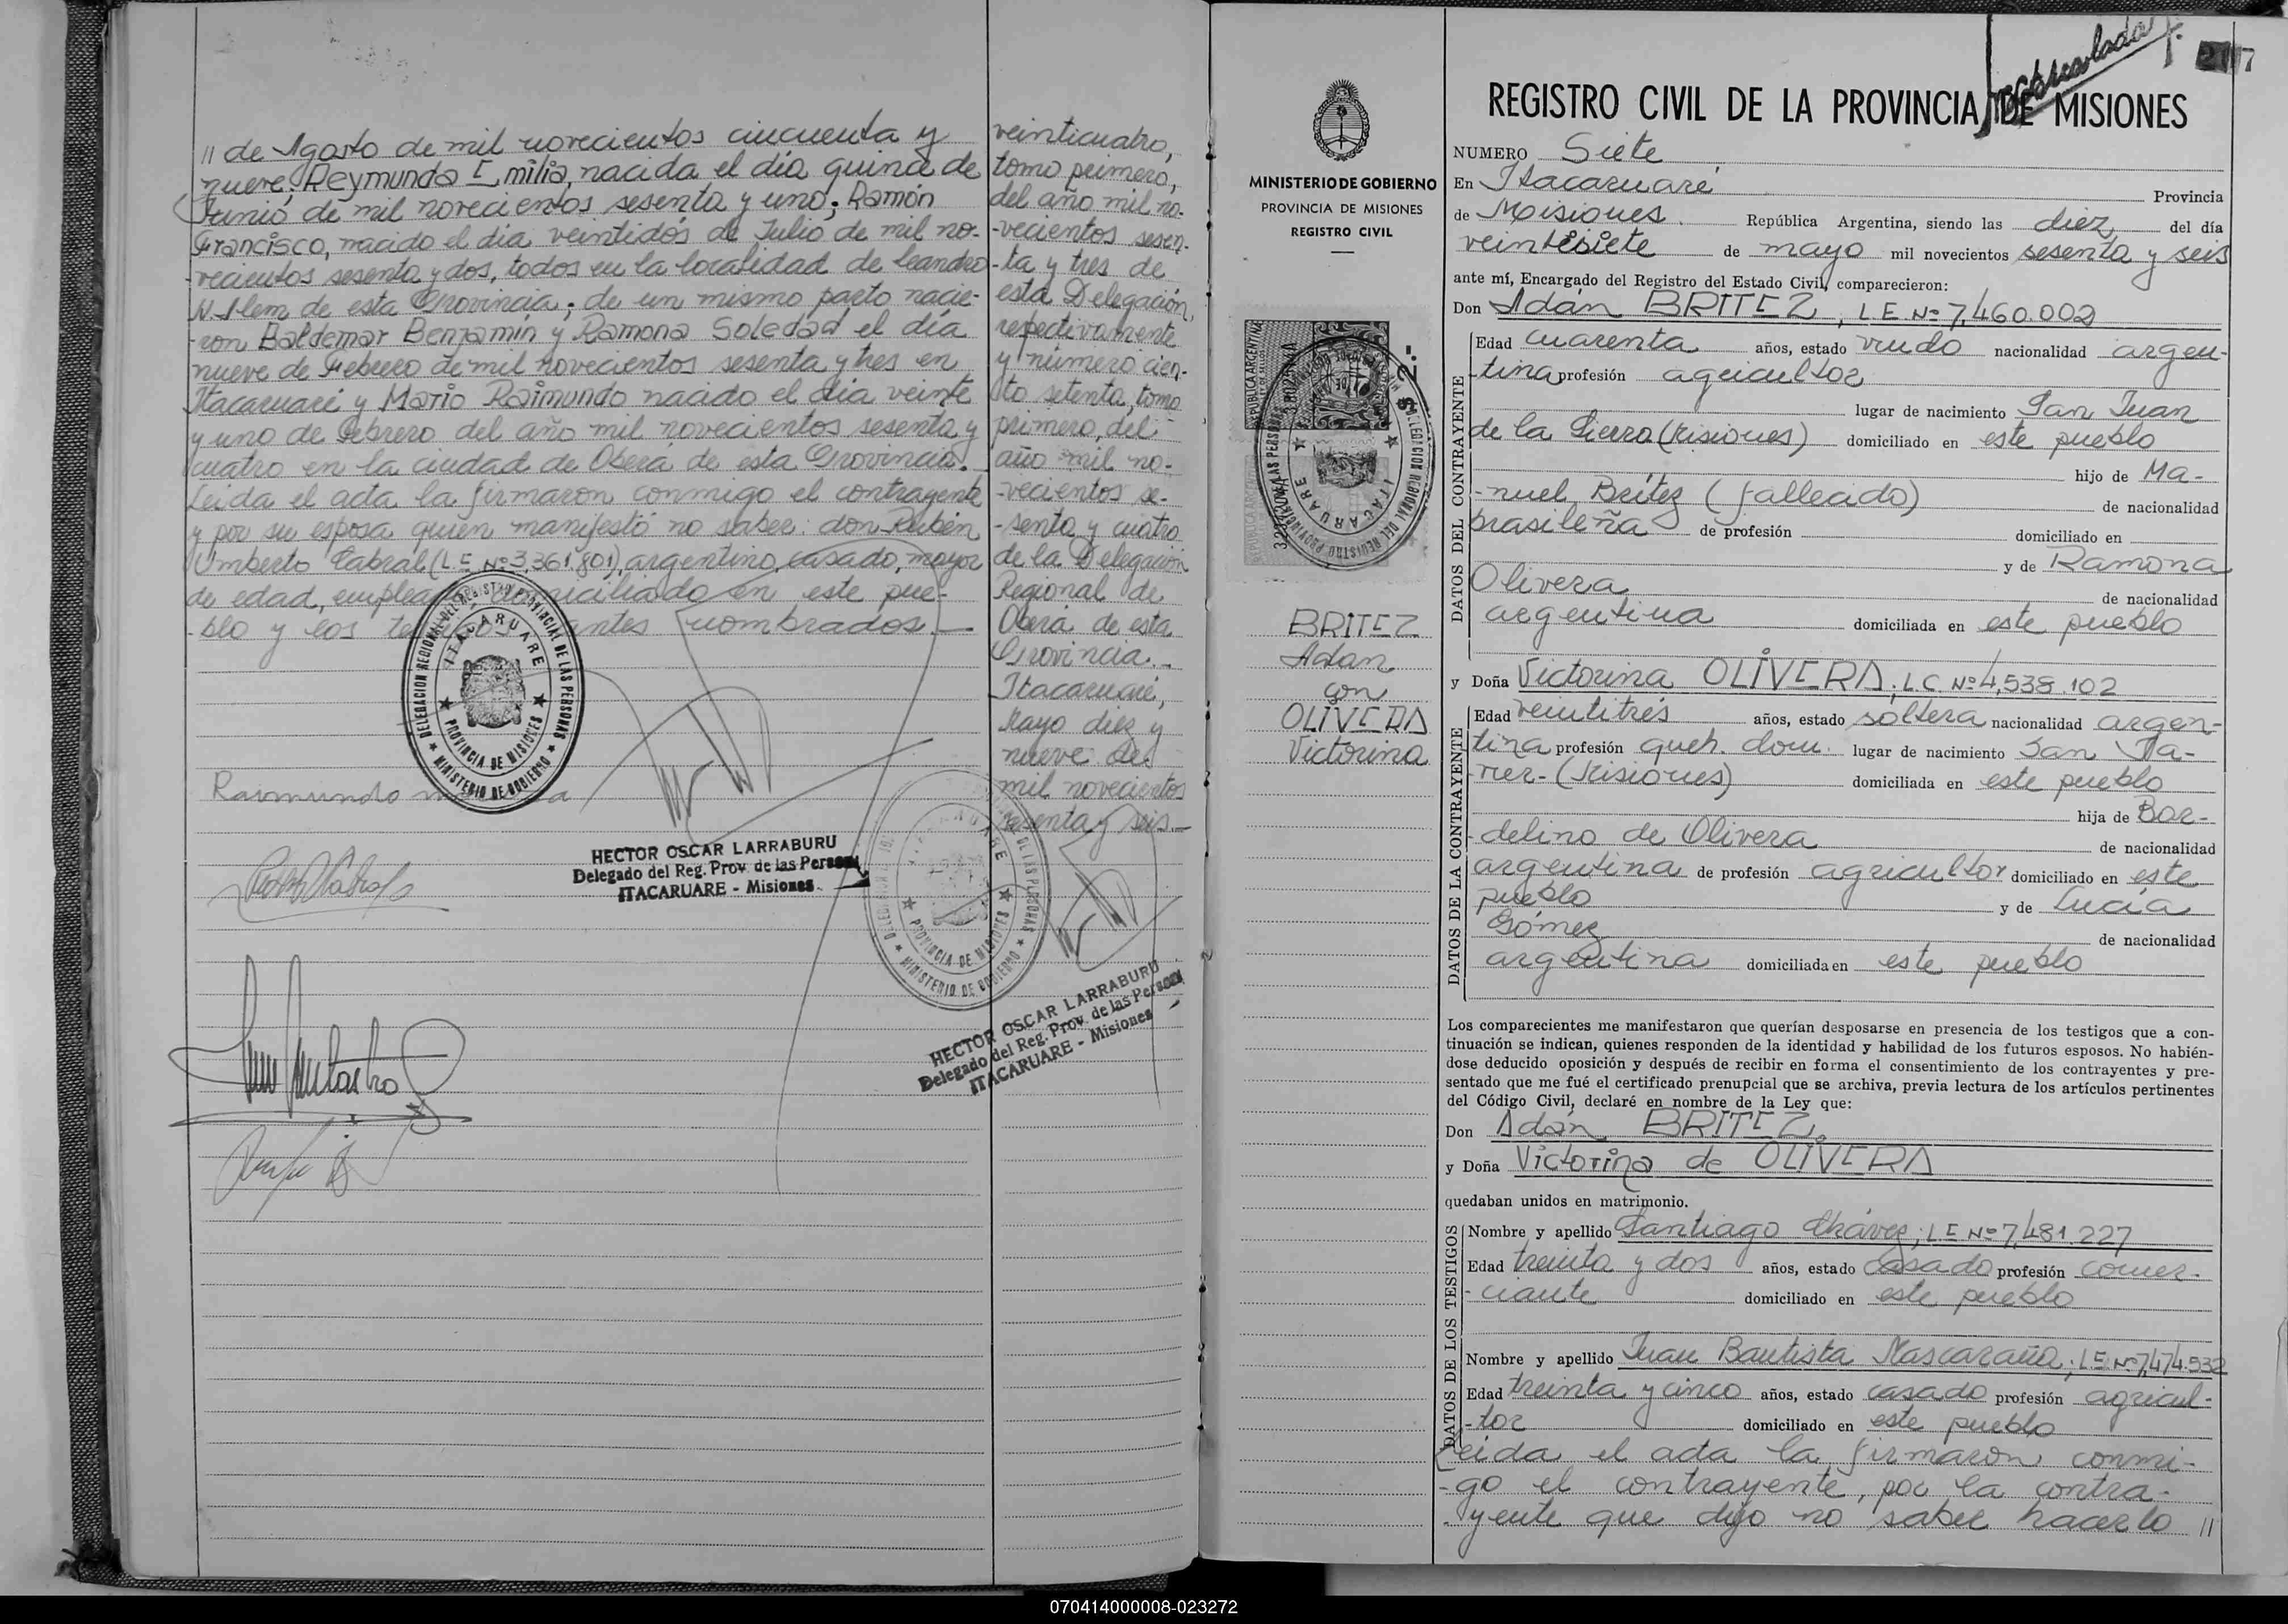 // de Agosto de mil novecientos cincuenta y
nueve; Reymunda Emilia, nacida el día quince de
Junio de mil novecientos sesenta y uno; Ramón
Francisco, nacido el día veintidós de Julio de mil no-
-vecientos sesenta y dos, todos en la localidad de Leandro
N. Alem de esta Provincia; de un mismo parto nacie-
-ron Baldemar Benjamín y Ramona Soledad el día
nueve de Febrero de mil novecientos sesenta y tres en
Itacaruaré y Mario Raimundo nacido el día veinte
y uno de Febrero del año mil novecientos sesenta y
cuatro en la ciudad de Oberá de esta Provincia.-
Leída el acta la firmaron conmigo el contrayente
y por su esposa quien manifestó no saber: don Rubén
Umberto Cabral (L.E. Nº 3.361.801), argentino, casado, mayor
de edad, emplea domiciliado en este pue-
-blo y los testigos antes nombrados.-
veinticuatro,
tomo primero,
del año mil no-
-vecientos sesen-
-ta y tres de
esta Delegación,
respectivamente
y número cien-
to setenta, tomo
primero, del
año mil no-
-vecientos se-
-senta y cuatro
de la Delegación
Regional de
Oberá de esta
Provincia.-
Itacaruaré,
Mayo diez y
nueve de
mil novecientos
sesenta y seis.-
DELEGACION REGIONAL DEL REGISTRO PROVINCIAL DE LAS PERSONAS
ITACARUARE
PROVINCIA DE MISIONES
MINISTERIO DE GOBIERNO
Raimundo
HECTOR OSCAR LARRABURU
Delegado del Reg. Prov. de las Personas
ITACARUARE - Misiones
ITACARUARE
PROVINCIA DE MISIONES
MINISTERIO DE GOBIERNO
HECTOR OSCAR LARRABURU
Delegado del Reg. Prov. de las Personas
ITACARUARE - Misiones
MINISTERIO DE GOBIERNO
PROVINCIA DE MISIONES
REGISTRO CIVIL
REPUBLICA ARGENTINA
ITACARUARE
BRITEZ
Adán
con
OLIVERA
Victorina
7
REGISTRO CIVIL DE LA PROVINCIA DE MISIONES
NUMERO Siete
En Itacaruaré Provincia
de Misiones República Argentina, siendo las diez del día
veintisiete de mayo mil novecientos sesenta y seis
ante mí, Encargado del Registro del Estado Civil, comparecieron:
Don Adán BRITEZ, L.E. Nº 7.460.002
DATOS DEL CONTRAYENTE
Edad cuarenta años, estado viudo nacionalidad argen-
-tina profesión agricultor
lugar de nacimiento San Juan
de la Sierra (Misiones) domiciliado en este pueblo
hijo de Ma-
-nuel Britez (falleado) de nacionalidad
brasileña de profesión domiciliado en
y de Ramona
Olivera de nacionalidad
argentina domiciliada en este pueblo
y Doña Victorina OLIVERA; L.C. Nº 4.538.102
DATOS DE LA CONTRAYENTE
Edad veintitrés años, estado soltera nacionalidad argen-
tina profesión queh. dom. lugar de nacimiento San Ja-
-vier- (Misiones) domiciliada en este pueblo
hija de Bor-
-delino de Olivera de nacionalidad
argentina de profesión agricultor domiciliado en este
pueblo y de Lucía
Gómez de nacionalidad
argentina domiciliada en este pueblo
Los comparecientes me manifestaron que querían desposarse en presencia de los testigos que a con-
tinuación se indican, quienes responden de la identidad y habilidad de los futuros esposos. No habién-
dose deducido oposición y después de recibir en forma el consentimiento de los contrayentes y pre-
sentado que me fué el certificado prenupcial que se archiva, previa lectura de los artículos pertinentes
del Código Civil, declaré en nombre de la Ley que:
Don Adán BRITEZ
y Doña Victorina de OLIVERA
quedaban unidos en matrimonio.
DATOS DE LOS TESTIGOS
Nombre y apellido Santiago Chávez; L.E. Nº 7.481.227
Edad treinta y dos años, estado casado profesión comer-
-ciante domiciliado en este pueblo
Nombre y apellido Juan Bautista Mascaraña; L.E. Nº 7.474.532
Edad treinta y cinco años, estado casado profesión agricul-
-tor domiciliado en este pueblo
Leída el acta la firmaron conmi-
-go el contrayente, por la contra-
-yente que dijo no saber hacerlo //
070414000008-023272